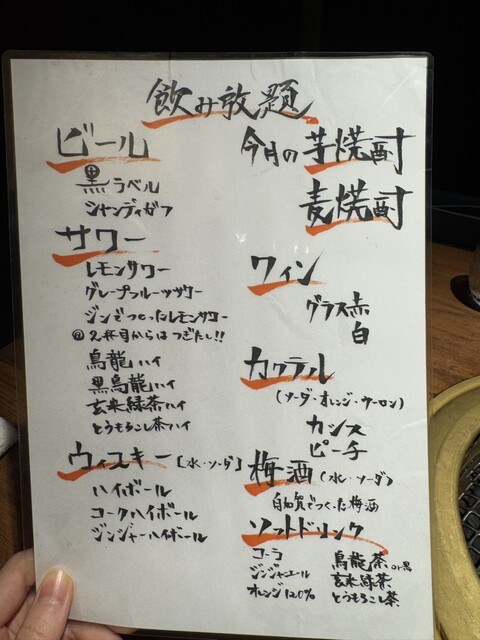 飲み放題
ビール
黒ラベル
シャンディガフ
サワー
レモンサワー
グレープフルーツサワー
ジンでつくったレモンサワー
2杯目からはつぎたし!!
烏龍ハイ
黒烏龍ハイ
玄米緑茶ハイ
とうもろこし茶ハイ
ウィスキー[水・ソーダ]
ハイボール
コークハイボール
ジンジャーハイボール
今月の芋焼酎
麦焼酎
ワイン
グラス赤
白
カクテル
(ソーダ・オレンジ・ウーロン)
カシス
ピーチ
梅酒(水・ソーダ)
自加賀でつくった梅酒
ソフトドリンク
コーラ
ジンジャーエール
オレンジ120%
烏龍茶or黒
玄米緑茶
とうもろこし茶